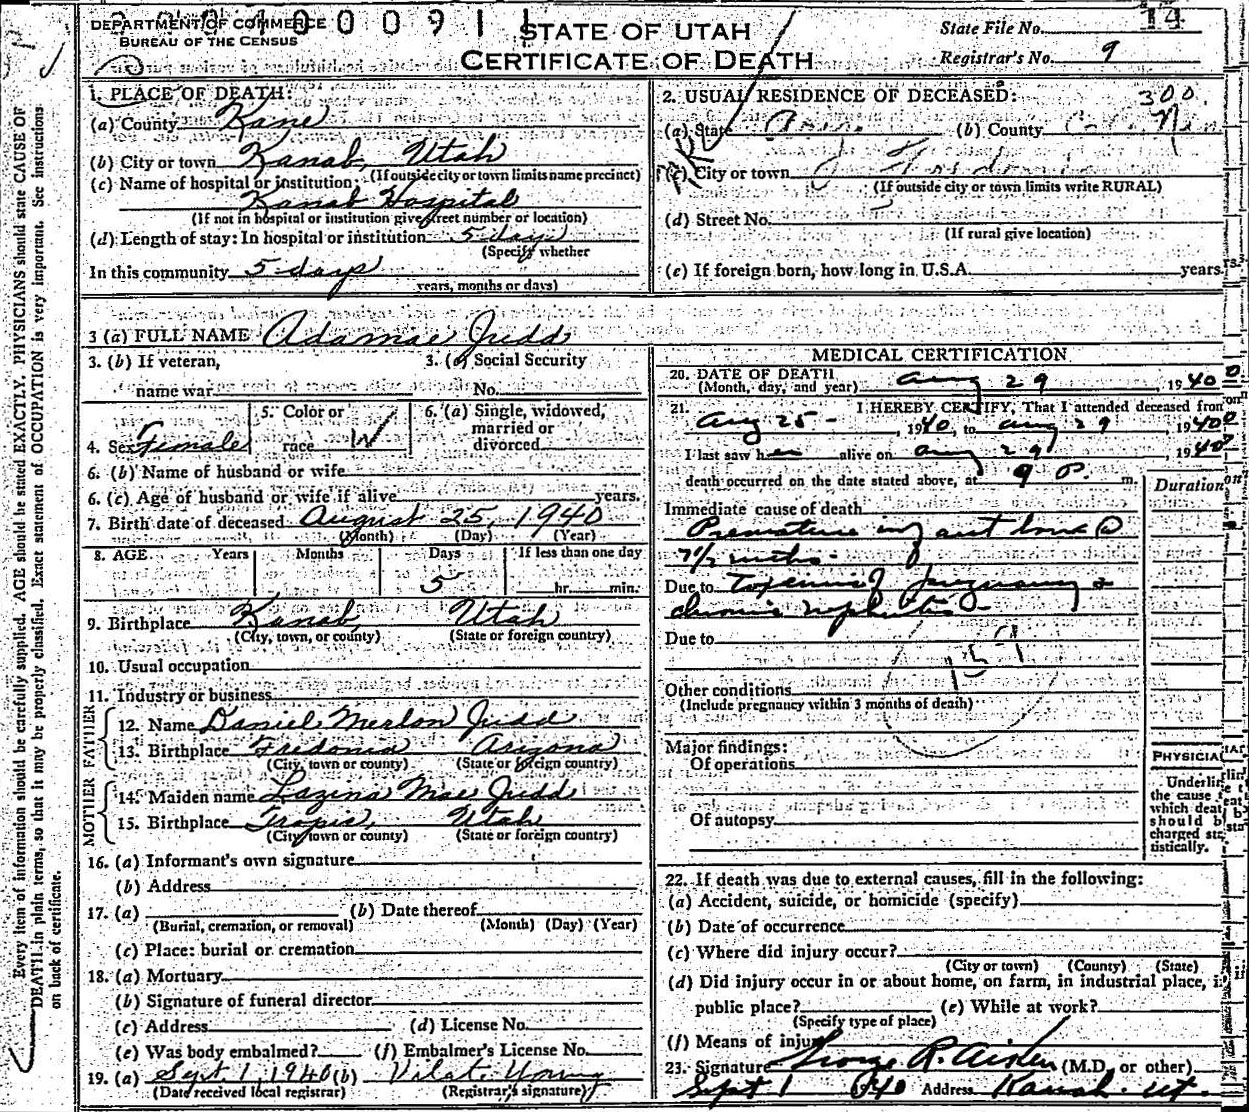 DEPARTMENT OF COMMERCE
BUREAU OF THE CENSUS
0 0 9 1 1
STATE OF UTAH
CERTIFICATE OF DEATH
State File No. 14
Registrar's No. 9
Every item of information should be carefully supplied. AGE should be stated EXACTLY. PHYSICIANS should state CAUSE OF
DEATH in plain terms, so that it may be properly classified. Exact statement of OCCUPATION is very important. See instructions
on back of certificate.
1. PLACE OF DEATH:
(a) County Kane
(b) City or town Kanab, Utah
(If outside city or town limits name precinct)
(c) Name of hospital or institution:
Kanab Hospital
(If not in hospital or institution give street number or location)
(d) Length of stay: In hospital or institution 5 days
(Specify whether
In this community 5 days
years, months or days)
2. USUAL RESIDENCE OF DECEASED: 300
(a) State Ariz. (b) County
(c) City or town Fredonia
(If outside city or town limits write RURAL)
(d) Street No.
(If rural give location)
(e) If foreign born, how long in U.S.A. years.
3 (a) FULL NAME Adamae Judd
3. (b) If veteran,
name war
3. (c) Social Security
No.
4. Sex Female
5. Color or
race W
6. (a) Single, widowed,
married or
divorced
6. (b) Name of husband or wife
6. (c) Age of husband or wife if alive years.
7. Birth date of deceased August 25, 1940
(Month) (Day) (Year)
8. AGE Years Months Days If less than one day
5 hr. min.
9. Birthplace Kanab, Utah
(City, town, or county) (State or foreign country)
10. Usual occupation
11. Industry or business
FATHER
12. Name Daniel Merlon Judd
13. Birthplace Fredonia Arizona
(City, town or county) (State or foreign country)
MOTHER
14. Maiden name Lazina Mae Judd
15. Birthplace Tropic, Utah
(City, town or county) (State or foreign country)
16. (a) Informant's own signature
(b) Address
17. (a) (b) Date thereof
(Burial, cremation, or removal) (Month) (Day) (Year)
(c) Place: burial or cremation
18. (a) Mortuary
(b) Signature of funeral director
(c) Address (d) License No.
(e) Was body embalmed? (f) Embalmer's License No.
19. (a) Sept 1, 1940 (b) Vilate Young
(Date received local registrar) (Registrar's signature)
MEDICAL CERTIFICATION
20. DATE OF DEATH
(Month, day, and year) Aug 29, 1940
21. I HEREBY CERTIFY, That I attended deceased from
Aug 25 - , 1940, to Aug 29, 1940
I last saw her alive on Aug 29, 1940
death occurred on the date stated above, at 9 P. m.
Duration
Immediate cause of death
Premature infant born @
7½ mths.
Due to Toxemia of pregnancy &
chronic nephritis
Due to
159
Other conditions
(Include pregnancy within 3 months of death)
Major findings:
Of operations
Of autopsy
PHYSICIA
Underline
the cause
which deat
should b
charged sta
tistically.
22. If death was due to external causes, fill in the following:
(a) Accident, suicide, or homicide (specify)
(b) Date of occurrence
(c) Where did injury occur?
(City or town) (County) (State)
(d) Did injury occur in or about home, on farm, in industrial place, i
public place? (e) While at work?
(Specify type of place)
(f) Means of injury
23. Signature George R. Aiken (M.D. or other)
Sept 1 1940 Address Kanab Ut.